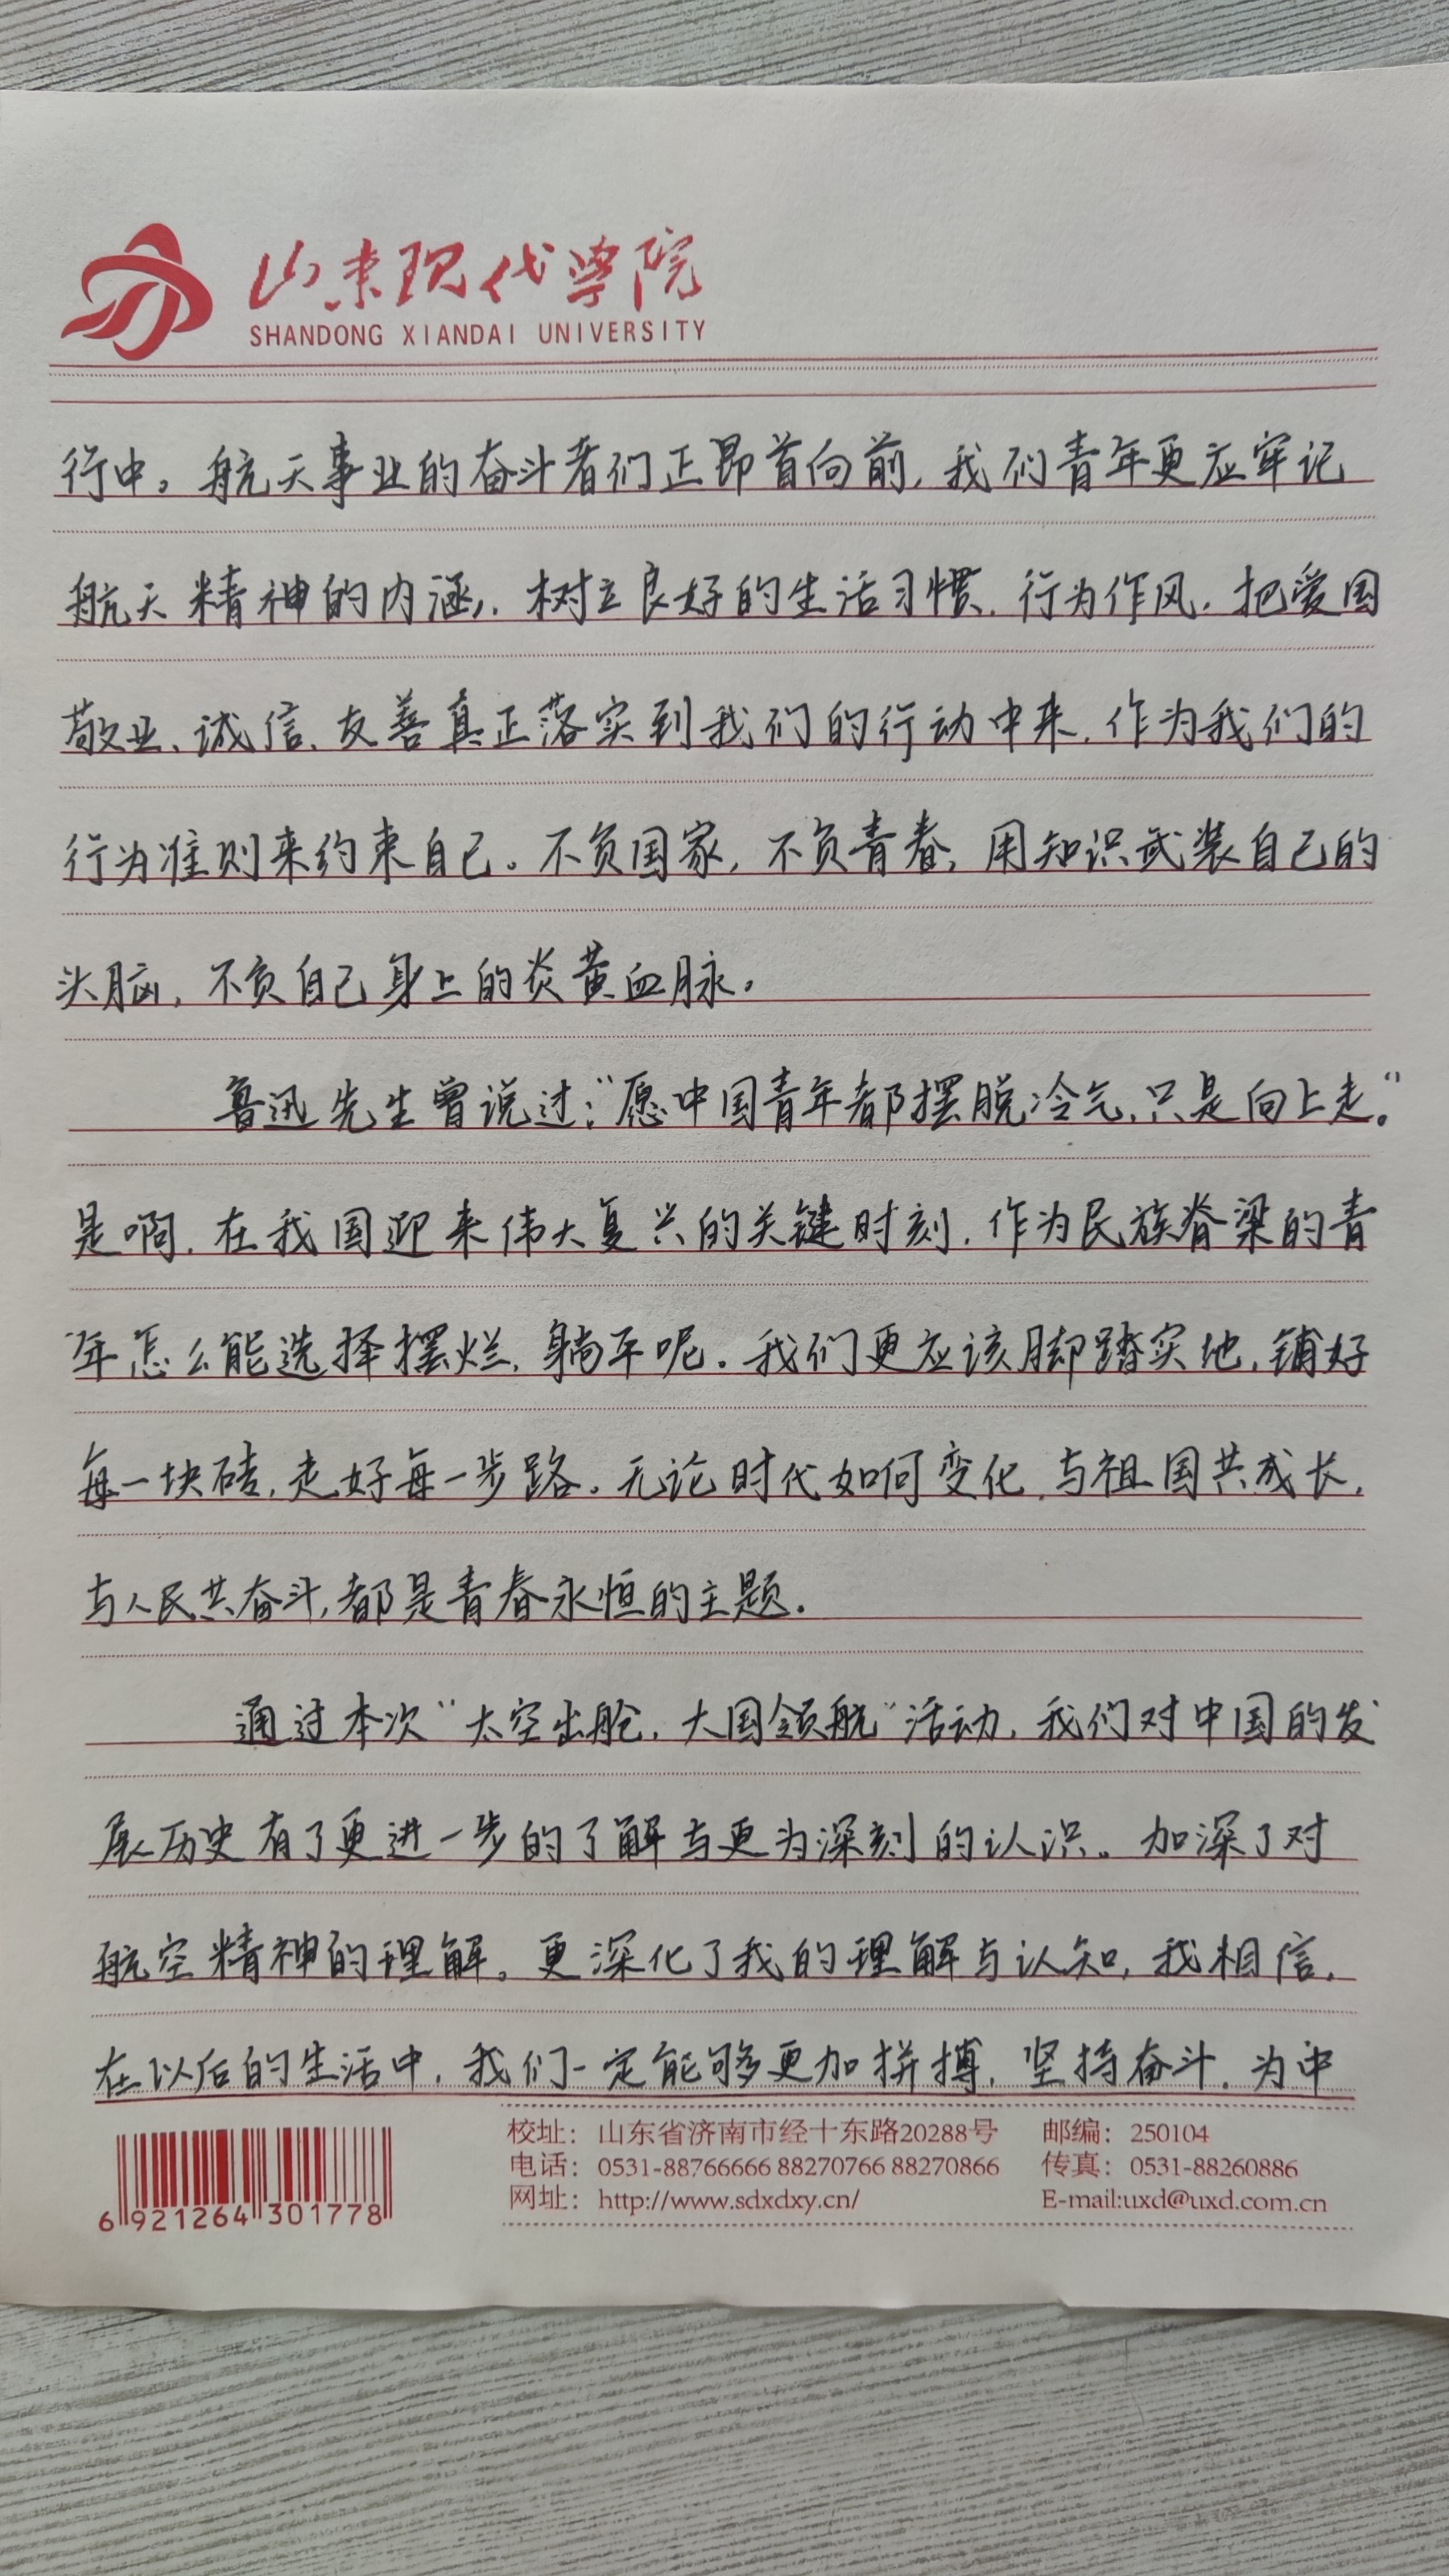 山东现代学院
SHANDONG XIANDAI UNIVERSITY
行中。航天事业的奋斗者们正昂首向前,我们青年更应牢记
航天精神的内涵,.树立良好的生活习惯.行为作风.把爱国
敬业、诚信、友善真正落实到我们的行动中来.作为我们的
行为准则来约束自己。不负国家,不负青春,用知识武装自己的
头脑,不负自己身上的炎黄血脉。
鲁迅先生曾说过:“愿中国青年都摆脱冷气,只是向上走。”
是啊.在我国迎来伟大复兴的关键时刻.作为民族脊梁的青
年怎么能选择摆烂,躺平呢.我们更应该脚踏实地,铺好
每一块砖,走好每一步路。无论时代如何变化,与祖国共成长,
与人民共奋斗,都是青春永恒的主题.
通过本次“太空出舱,大国领航”活动,我们对中国的发
展历史有了更进一步的了解与更为深刻的认识。加深了对
航空精神的理解。更深化了我的理解与认知,我相信,
在以后的生活中,我们一定能够更加拼搏,坚持奋斗.为中
校址:山东省济南市经十东路20288号 邮编:250104
电话:0531-88766666 88270766 88270866 传真:0531-88260886
网址:http://www.sdxdxy.cn/ E-mail:uxd@uxd.com.cn
6 921264 301778